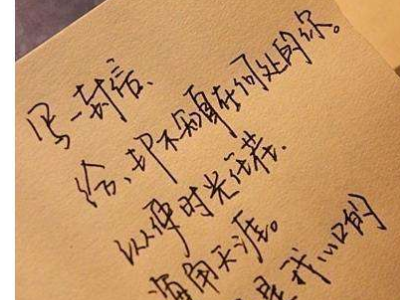 写一封信、
给、却不知身在何处的你。
以便时光荏苒、
海角天涯。
是我心口的